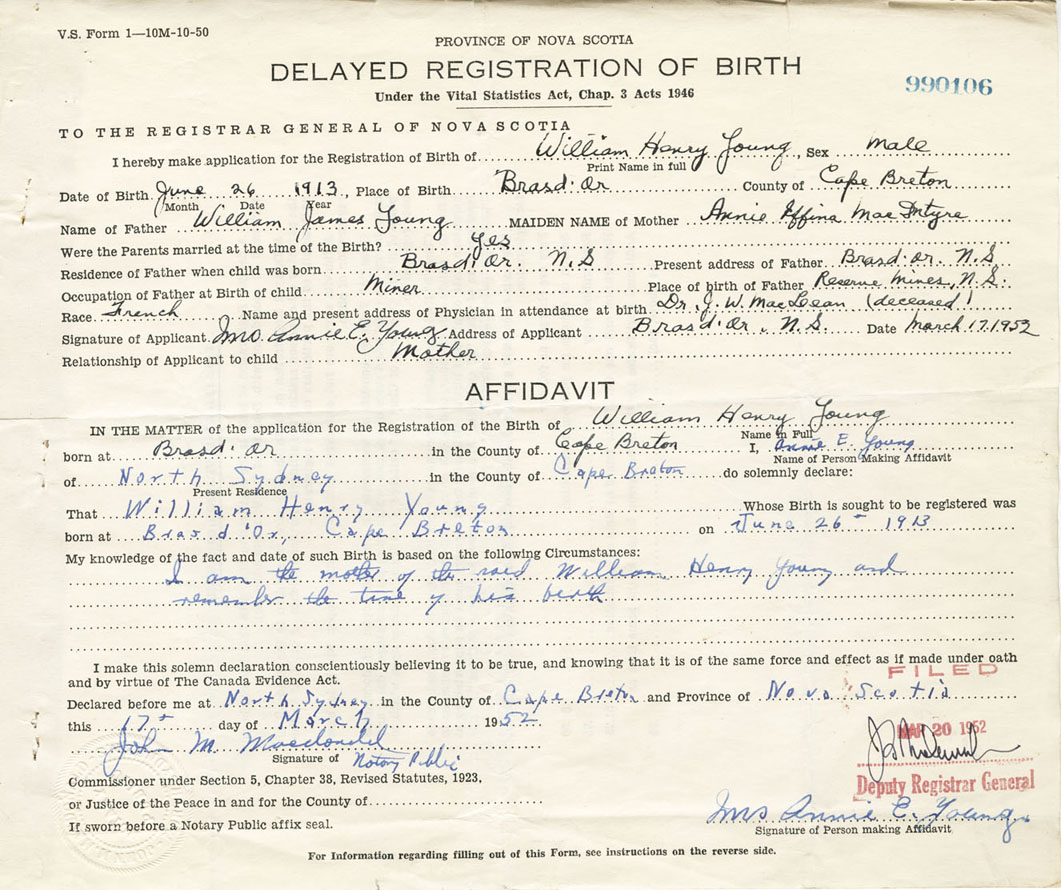 V.S. Form 1—10M-10-50
PROVINCE OF NOVA SCOTIA
DELAYED REGISTRATION OF BIRTH
990106
Under the Vital Statistics Act, Chap. 3 Acts 1946
TO THE REGISTRAR GENERAL OF NOVA SCOTIA
I hereby make application for the Registration of Birth of William Henry Young, Sex male
Print Name in full
Date of Birth June 26 1913, Place of Birth Brasd'or County of Cape Breton
Month Date Year
Name of Father William James Young MAIDEN NAME of Mother Annie Effina MacIntyre
Were the Parents married at the time of the Birth? yes
Residence of Father when child was born Brasd'or. N.S Present address of Father Brasd'or. N.S.
Occupation of Father at Birth of child Miner Place of birth of Father Reserve Mines, N.S.
Race French Name and present address of Physician in attendance at birth Dr. J. W. MacLean (deceased)
Signature of Applicant Mrs. Annie E. Young Address of Applicant Brasd'or, N.S. Date March 17, 1952
Relationship of Applicant to child Mother
AFFIDAVIT
IN THE MATTER of the application for the Registration of the Birth of William Henry Young
Name in Full
born at Brasd'or in the County of Cape Breton I, Annie E. Young
Name of Person Making Affidavit
of North Sydney in the County of Cape Breton do solemnly declare:
Present Residence
That William Henry Young Whose Birth is sought to be registered was
born at Bras d'Or, Cape Breton on June 26th 1913
My knowledge of the fact and date of such Birth is based on the following Circumstances:
I am the mother of the said William Henry Young and
remember the time of his birth
I make this solemn declaration conscientiously believing it to be true, and knowing that it is of the same force and effect as if made under oath
and by virtue of The Canada Evidence Act.
FILED
Declared before me at North Sydney in the County of Cape Breton and Province of Nova Scotia
this 17th day of March 1952
MAR 20 1952
John M. Macdonald
Signature of Notary Public
Deputy Registrar General
Commissioner under Section 5, Chapter 38, Revised Statutes, 1923,
or Justice of the Peace in and for the County of
Mrs Annie E. Young
Signature of Person making Affidavit
If sworn before a Notary Public affix seal.
For Information regarding filling out of this Form, see instructions on the reverse side.